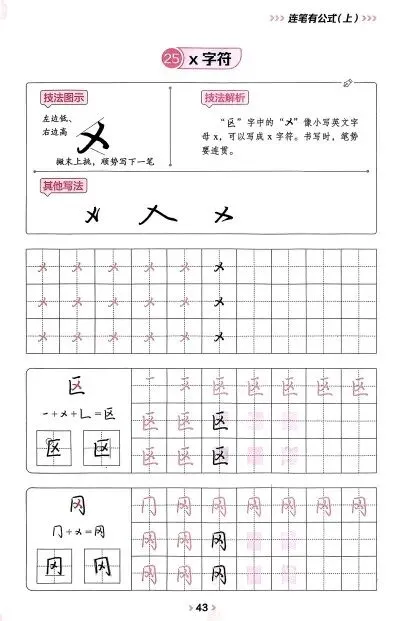 >>> 连笔有公式(上) >>>
25 x 字符
技法图示
左边低、
右边高
㐅
捺末上挑，顺势写下一笔
技法解析
“区”字中的“㐅”像小写英文字
母 x，可以写成 x 字符。书写时，笔势
要连贯。
其他写法
㐅 㐅 㐅
㐅 㐅 㐅 㐅 㐅 㐅
㐅 㐅 㐅 㐅 㐅 㐅
㐅 㐅 㐅 㐅 㐅 㐅
区
一+㐅+乚=区
区 区
一 区 区 区 区 区
区 区 区
区 区 区
冈
冂+㐅=冈
冈 冈
冂 冈 冈 冈 冈 冈 冈
冈 冈 冈
冈 冈 冈
> 43 >